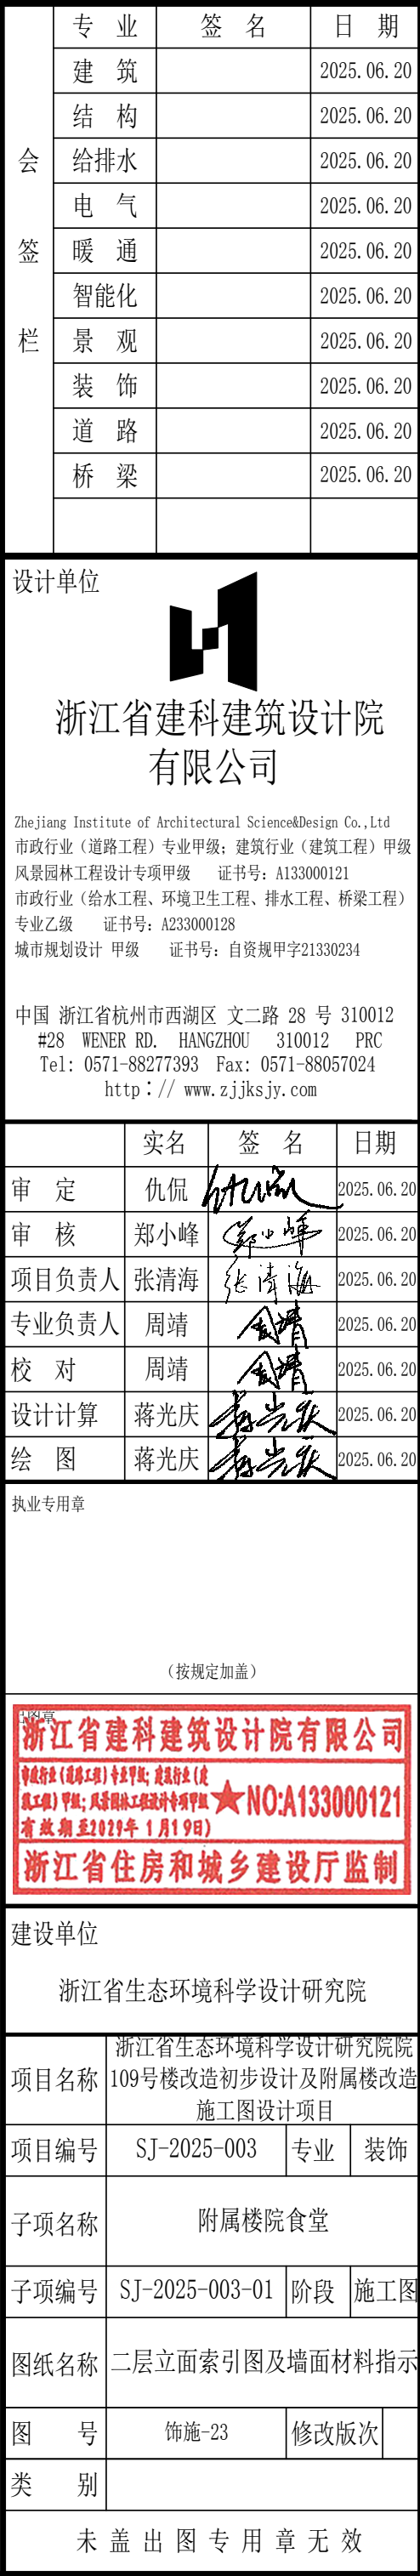 会签栏
专 业 签 名 日 期
建 筑 2025.06.20
结 构 2025.06.20
给排水 2025.06.20
电 气 2025.06.20
暖 通 2025.06.20
智能化 2025.06.20
景 观 2025.06.20
装 饰 2025.06.20
道 路 2025.06.20
桥 梁 2025.06.20
设计单位
浙江省建科建筑设计院
有限公司
Zhejiang Institute of Architectural Science&Design Co.,Ltd
市政行业（道路工程）专业甲级；建筑行业（建筑工程）甲级
风景园林工程设计专项甲级 证书号：A133000121
市政行业（给水工程、环境卫生工程、排水工程、桥梁工程）
专业乙级 证书号：A233000128
城市规划设计 甲级 证书号：自资规甲字21330234
中国 浙江省杭州市西湖区 文二路 28 号 310012
#28 WENER RD. HANGZHOU 310012 PRC
Tel: 0571-88277393 Fax: 0571-88057024
http：// www.zjjksjy.com
实名 签 名 日期
审 定 仇侃 仇侃 2025.06.20
审 核 郑小峰 郑小峰 2025.06.20
项目负责人 张清海 张清海 2025.06.20
专业负责人 周靖 周靖 2025.06.20
校 对 周靖 周靖 2025.06.20
设计计算 蒋光庆 蒋光庆 2025.06.20
绘 图 蒋光庆 蒋光庆 2025.06.20
执业专用章
（按规定加盖）
浙江省建科建筑设计院有限公司
市政行业(道路工程)专业甲级; 建筑行业(建
筑工程)甲级; 风景园林工程设计专项甲级
有效期至2029年1月19日)
★NO:A133000121
浙江省住房和城乡建设厅监制
建设单位
浙江省生态环境科学设计研究院
项目名称
浙江省生态环境科学设计研究院院
109号楼改造初步设计及附属楼改造
施工图设计项目
项目编号 SJ-2025-003 专业 装饰
子项名称 附属楼院食堂
子项编号 SJ-2025-003-01 阶段 施工图
图纸名称 二层立面索引图及墙面材料指示
图 号 饰施-23 修改版次
类 别
未盖出图专用章无效